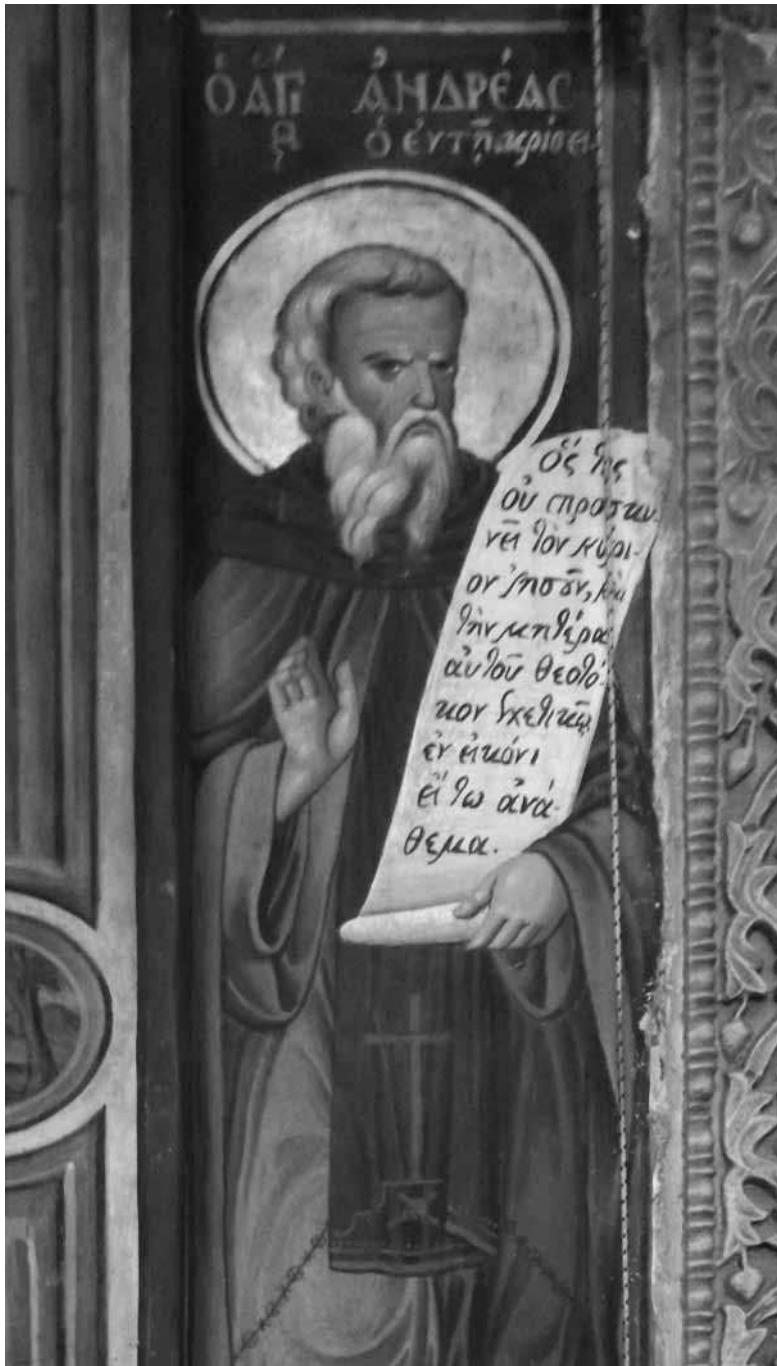 ὁ ἅγι ἀνδρέας
ὁ ἐν τῇ κρίσει
ὅς τις
οὐ προσκυ-
νεῖ τὸν κύρι-
ον ἰησοῦν, καὶ
τὴν μητέρα
αὐτοῦ θεοτό-
κον σχετικῶς
ἐν εἰκόνι
εἴ τω ἀνά-
θεμα.